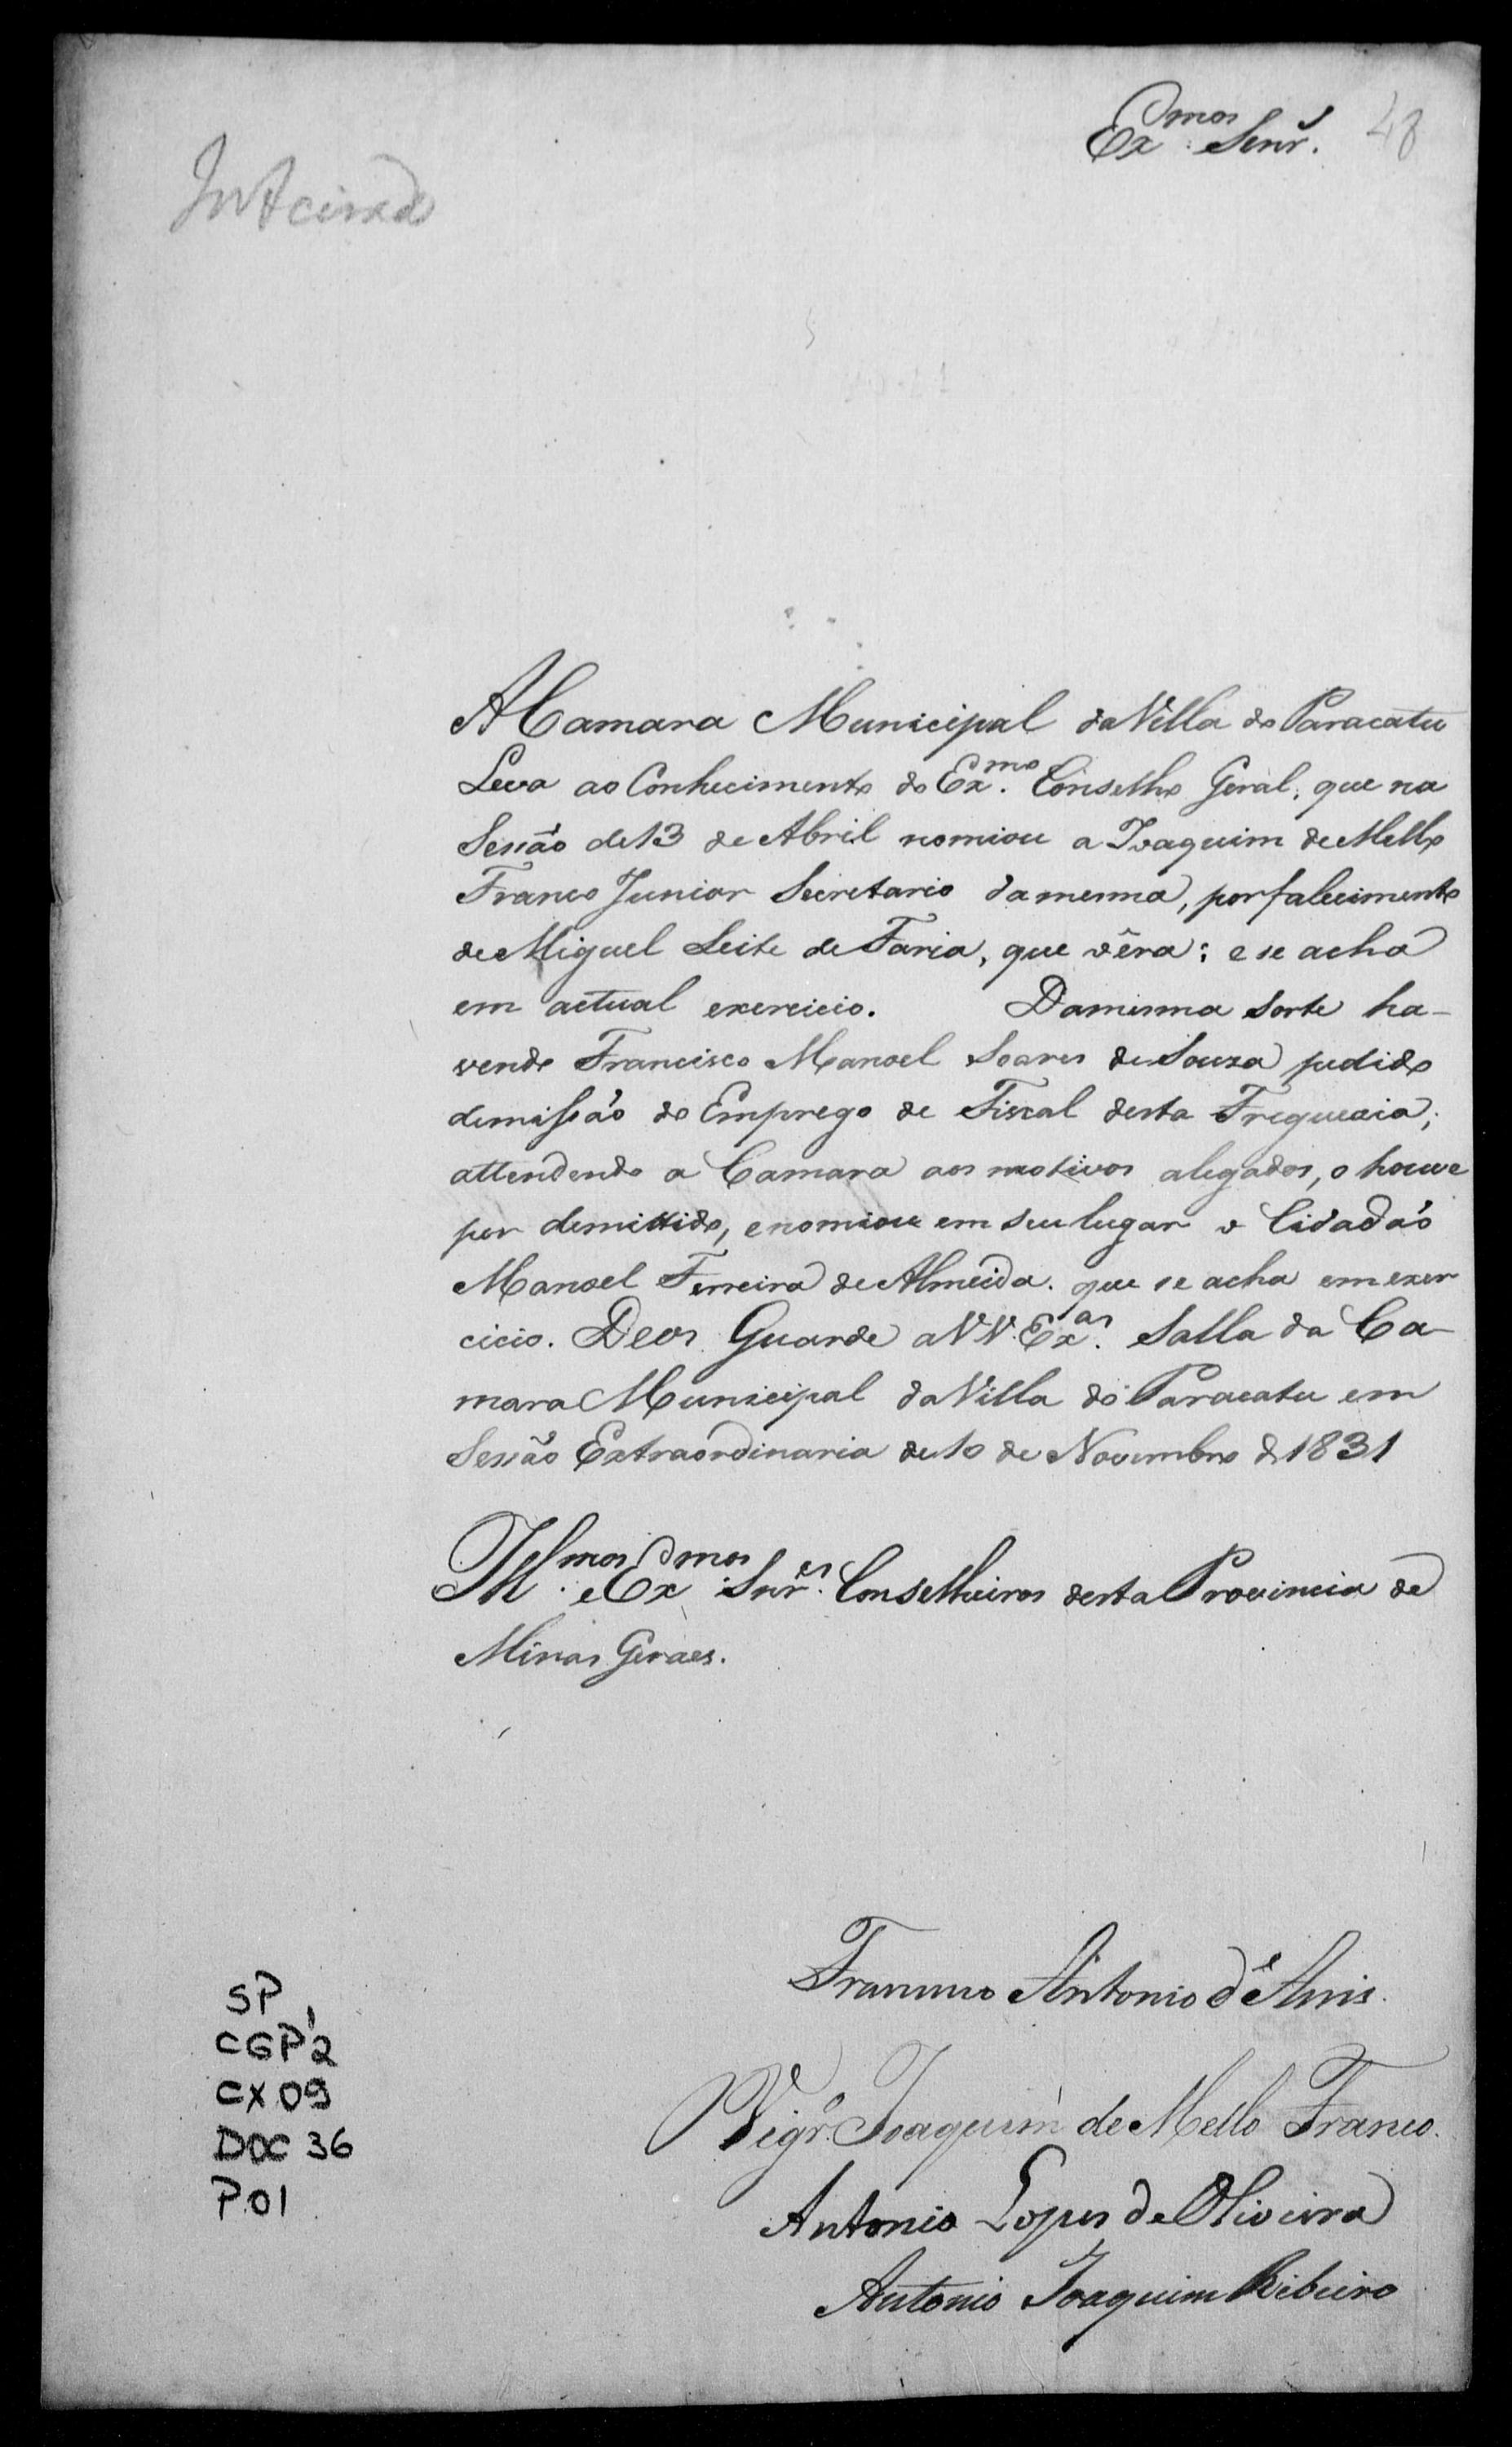 Ex.mos Senr.s 48
Inteirado
A Camara Municipal da Villa do Paracatu
Leva ao Conhecimento do Ex.mo Conselho Geral, que na
Sessão de 13 de Abril nomiou a Joaquim de Mello
Franco Junior Secretario da mesma, por falecimento
de Miguel Leite de Faria, que o éra; e se acha
em actual exercicio. Da mesma sorte ha-
vendo Francisco Manoel Soares de Souza pedido
demissão do Emprego de Fiscal desta Freguezia;
attendendo a Camara aos motivos alegados, o houve
por demittido, e nomiou em seu lugar o Cidadão
Manoel Ferreira de Almeida. que se acha em exer
cicio. Deos Guarde a VV. Ex.as Salla da Ca-
mara Municipal da Villa do Paracatu em
Sessão Extraordinaria de 10 de Novembro de 1831
Ill.mos e Ex.mos Snr.es Conselheiros desta Provincia de
Minas Geraes.
Francisco Antonio d'Assis.
Vigr.o Joaquim de Mello Franco.
Antonio Lopes de Oliveira
Antonio Joaquim Ribeiro
SP
CGP'2
CX 09
DOC 36
P.01